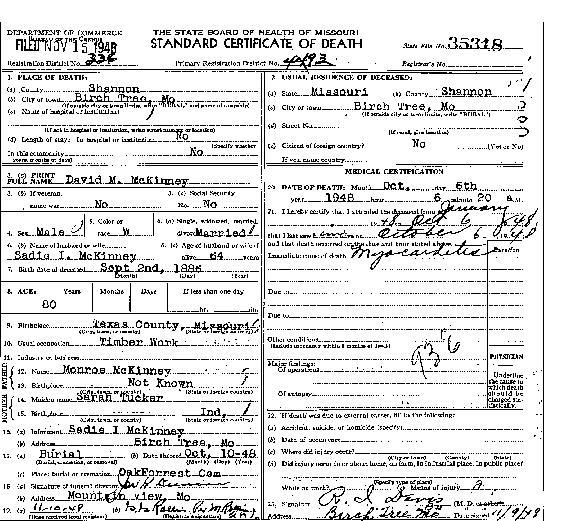 DEPARTMENT OF COMMERCE
THE STATE BOARD OF HEALTH OF MISSOURI
STANDARD CERTIFICATE OF DEATH
FILED NOV 15 1948
State File No. 35318
Registration District No. 336
Primary Registration District No.
Registrar's No.
1. PLACE OF DEATH:
(a) County Shannon
(b) City or town Birch Tree, Mo
(c) Name of hospital or institution:
(If not in hospital or institution, write street number or location)
(d) Length of stay: In hospital or institution No
In this community No
2. USUAL RESIDENCE OF DECEASED:
(a) State Missouri (b) County Shannon
(c) City or town Birch Tree, Mo
(d) Street No.
(e) Citizen of foreign country? No (Yes or No)
If yes, name country
3. (a) PRINT FULL NAME David M. McKinney
3. (b) If veteran, name war No
3. (c) Social Security No. No
4. Sex Male
5. Color or race W
6. (a) Single, widowed, married, divorced Married
6. (b) Name of husband or wife Sadie I. McKinney
6. (c) Age of husband or wife if alive 64 years
7. Birth date of deceased Sept 2nd,
8. AGE: Years Months Days If less than one day
80
9. Birthplace Texas County, Missouri
10. Usual occupation Timber Work
11. Industry or business
FATHER
12. Name Monroe McKinney
13. Birthplace Not Known
MOTHER
14. Maiden name Sarah Tucker
15. Birthplace Ind,
(a) Informant Sadie I McKinney
(b) Address Birch Tree, Mo
(a) Burial (b) Date thereof Oct, 10-48
(c) Place: burial or cremation OakForrest Cem
(a) Signature of funeral director
(b) Address Mountain view, Mo
11-10-48
MEDICAL CERTIFICATION
20. DATE OF DEATH: Month Oct, day 6th
1948 hour 6 minute 20 a
21. I hereby certify that I attended the deceased from January
1948 Oct 6 1948
that I last saw him alive on October 6 1948
and that death occurred on the date and hour stated above.
Immediate cause of death Myocarditis
Duration
Due to
Due to
Other conditions
(Include pregnancy within 3 months of death)
Major findings:
Of operations
Of autopsy
PHYSICIAN
Underline the cause to which death should be charged statistically.
22. If death was due to external causes, fill in the following:
(a) Accident, suicide, or homicide (specify)
(b) Date of occurrence
(c) Where did injury occur?
(d) Did injury occur in or about home, on farm, in industrial place, in public place?
While at work? (e) Means of injury
23. Signature R. I. Davis
Address Birch Tree Mo 11/9/48